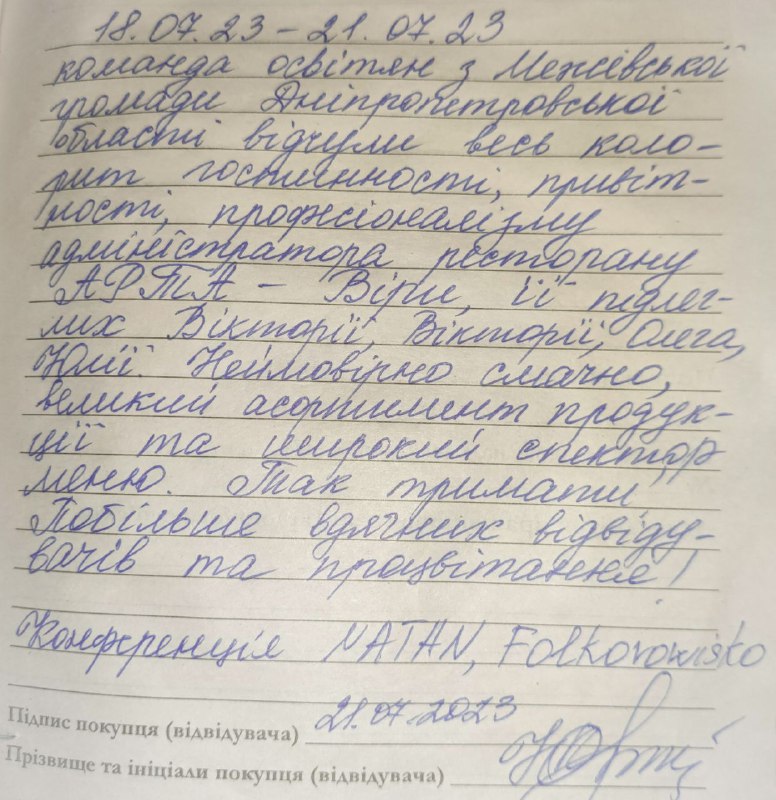 18.07.23 – 21.07.23
команда освітян з Межівської
громади Дніпропетровської
області відчули весь коло-
рит гостинності, привіт-
ності, професіоналізму
адміністратора ресторану
АРТА – Віри, її підлег-
лих Вікторії, Вікторії, Олега,
Юлії. Неймовірно смачно,
великий асортимент продук-
ції та широкий спектр
меню. Так тримати!
Побільше вдячних відвіду-
вачів та процвітання!
Конференція NATAN, Folkorowisko
Підпис покупця (відвідувача) 21.07.2023
Прізвище та ініціали покупця (відвідувача)